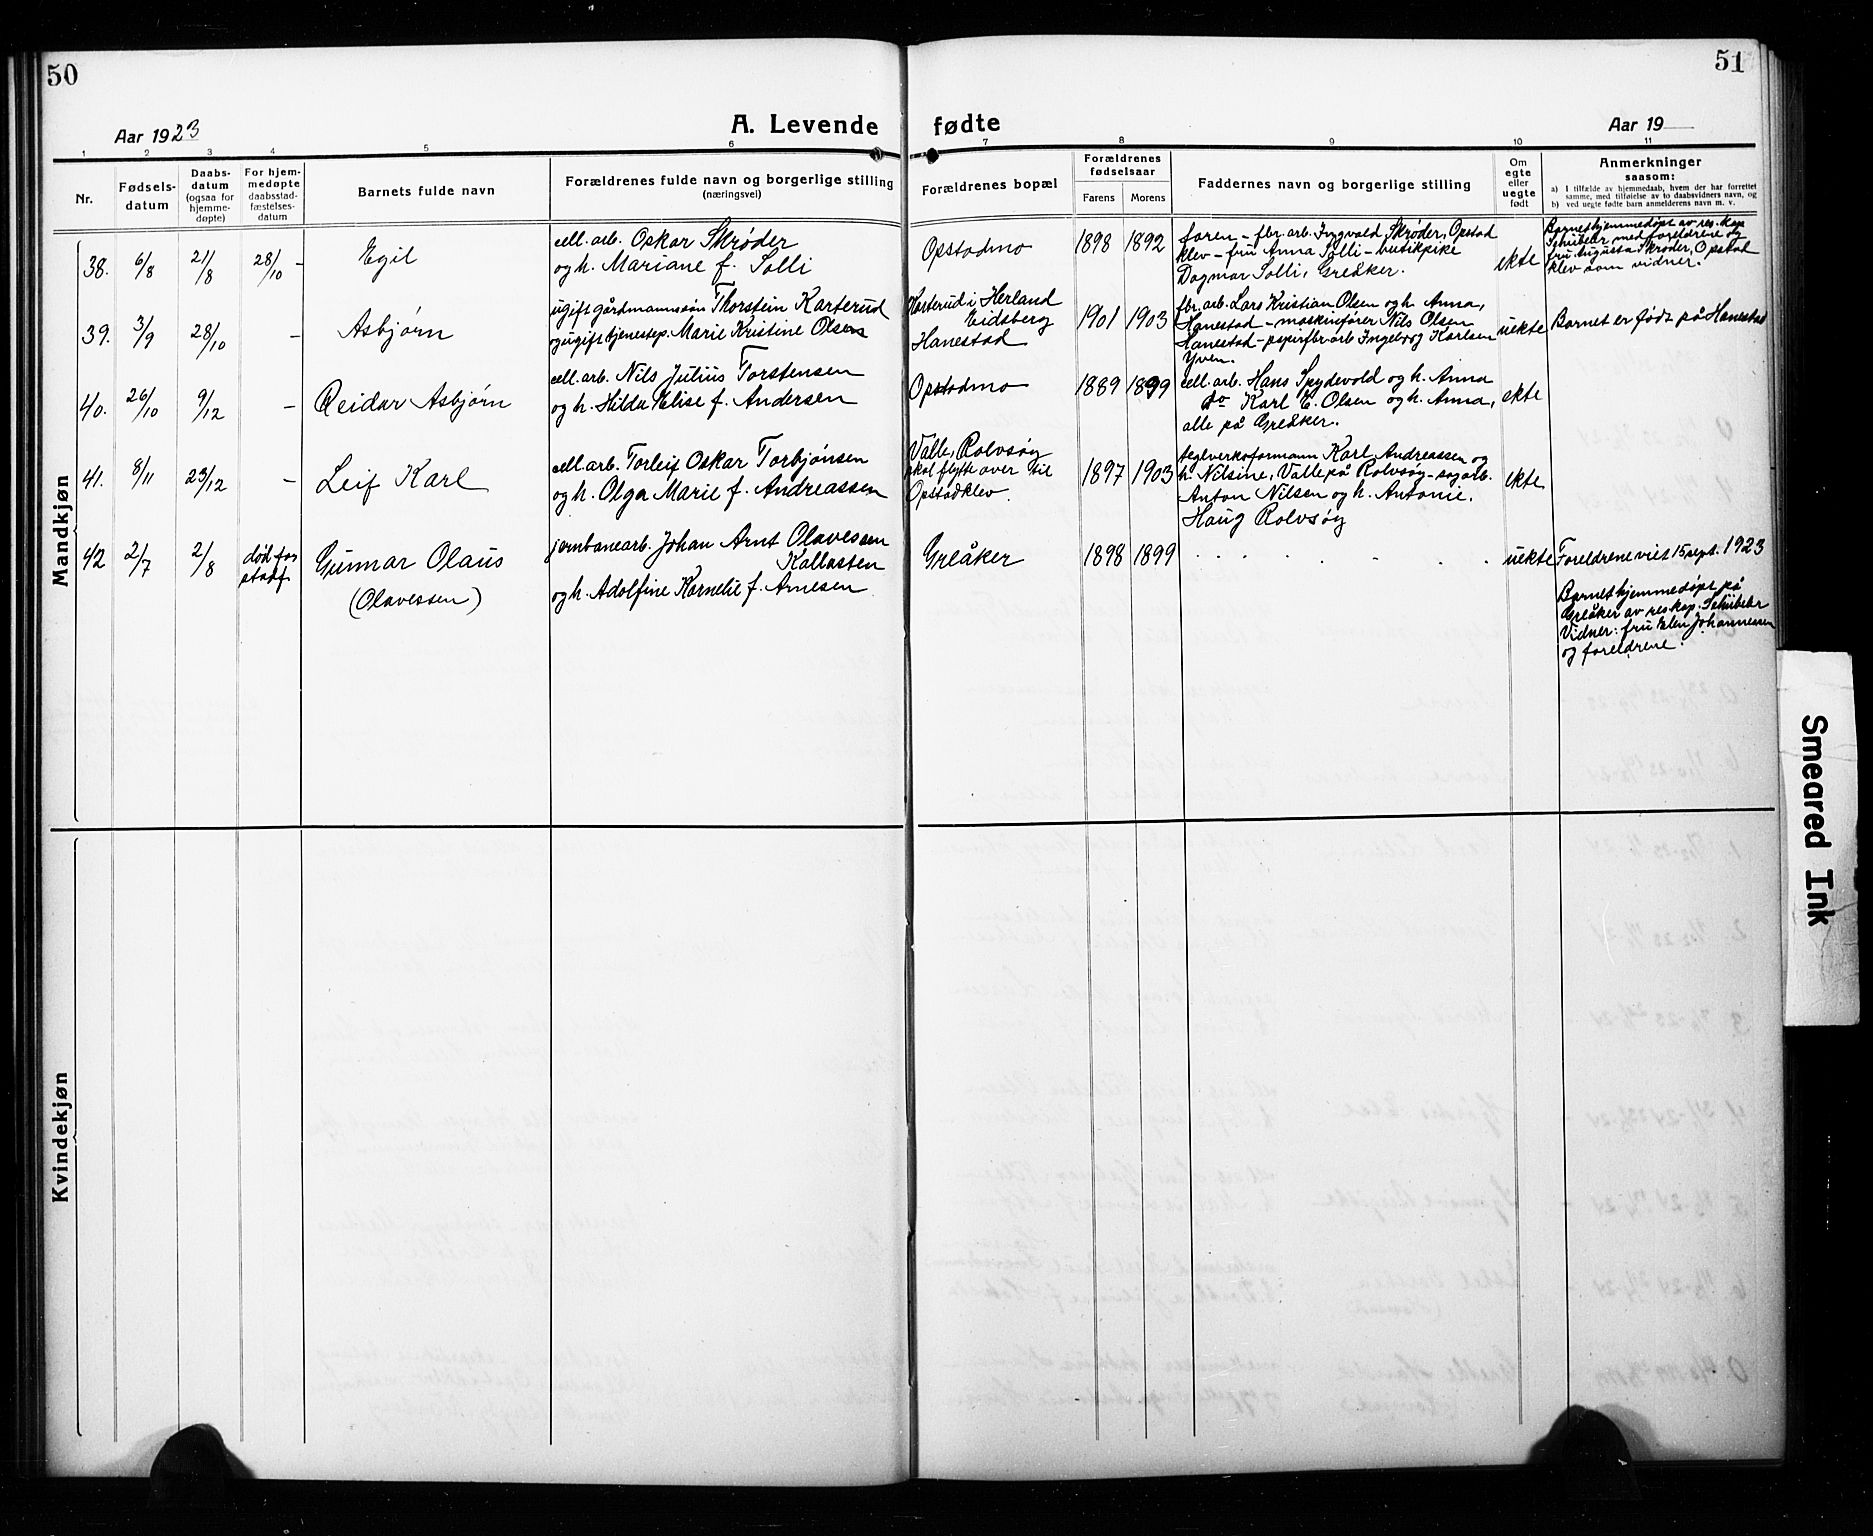 50
51
Aar 1923
A. Levende fødte
Aar 19
1 2 3 4 5 6 7 8 9 10 11
Nr.
Fødsels-
datum
Daabs-
datum
(ogsaa for
hjemme-
døpte)
For hjem-
medøpte
daabsstad-
fæstelses-
datum
Barnets fulde navn
Forældrenes fulde navn og borgerlige stilling
(næringsvei)
Forældrenes bopæl
Forældrenes
fødselsaar
Farens Morens
Faddernes navn og borgerlige stilling
Om
egte
eller
uegte
født
Anmerkninger
saasom:
a) I tilfælde av hjemmedaab, hvem der har forrettet
samme, med tilføielse av to daabsvidners navn, og
b) ved uegte fødte barn anmelderens navn m. v.
Mandkjøn
38. 6/8 21/8 28/10 -
Egil
cell. arb. Oskar Skrøder
og h. Mariane f. Solli
Opstadmo
1898 1892
faren - fbr. arb. Ingvald Skrøder, Opstad
klev - fru Anna Solli - butikpike
Dagmar Solli, Greåker.
ekte
Barnet hjemmedøpt av res. kap
Schübeler med foreldrene og
fru Augusta Skrøder, Opstad
klev som vidner.
39. 3/9 28/10 -
Asbjørn
ugift gårdmannssøn Thorstein Karterud
og ugift tjenestep. Marie Kristine Olsen
Karterud i Herland
Eidsberg
Hanestad
1901 1903
fbr. arb. Lars Kristian Olsen og h. Anna,
Hanestad - maskinfører Nils Olsen
Hanestad - papirfbr. arb Ingeborg Karlsen
Yven.
uekte
Barnet er født på Hanestad
40. 26/10 9/12 -
Reidar Asbjørn
cell. arb. Nils Julius Torstensen
og h. Hilda Elise f. Andersen
Opstadmo
1889 1899
cell. arb. Hans Spydevold og h. Anna
do Karl E. Olsen og h. Anna,
alle på Greåker.
ekte
41. 8/11 23/12 -
Leif Karl
cell. arb. Torleif Oskar Torbjønsen
og h. Olga Marie f. Andreassen
Valle, Rolvsøy
skal flytte over til
Opstadklev.
1897 1903
teglverksformann Karl Andreassen og
h. Nilsine, Valle på Rolvsøy - sagarb.
Anton Nilsen og h. Antonie.
Haug Rolvsøy
ekte
42 2/7 2/8
død før
stadf.
Gunnar Olaus
(Olavessen)
jernbanearb. Johan Arnt Olavessen
Kallasten
og h. Adolfine Kornelie f. Arnesen
Greåker
1898 1899
uekte
Foreldrene viet 15 sept. 1923
Barnet hjemmedøpt på
Greåker av res kap. Schübeler
Vidner: fru Elen Johannessen
og foreldrene.
Kvindekjøn
Smeared Ink